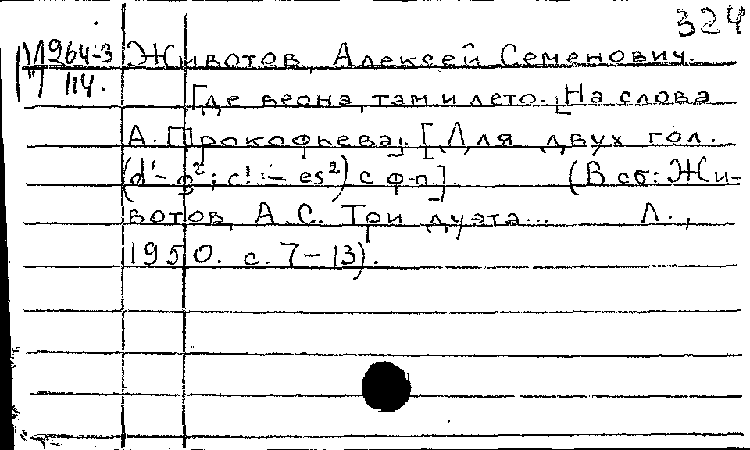 324
1964-3 Животов, Алексей Семенович.
114.
Где весна, там и лето. [На слова
А. Прокофьева]. [Для двух гол.
(d¹ - g²; c¹ - es²) с ф-п]. (В сб: Жи-
вотов, А.С. Три дуэта... Л.,
1950. с. 7-13).